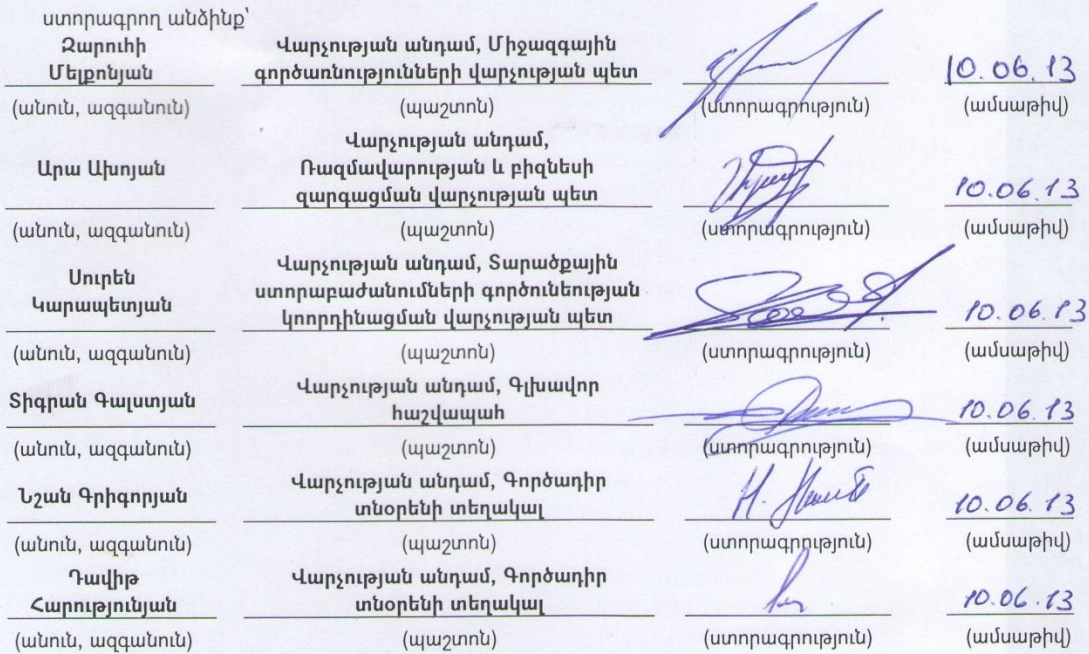 ստորագրող անձինք՝
Զարուհի
Մելքոնյան
Վարչության անդամ, Միջազգային
գործառնությունների վարչության պետ
10.06.13
(անուն, ազգանուն) (պաշտոն) (ստորագրություն) (ամսաթիվ)
Արա Ախոյան
Վարչության անդամ,
Ռազմավարության և բիզնեսի
զարգացման վարչության պետ
10.06.13
(անուն, ազգանուն) (պաշտոն) (ստորագրություն) (ամսաթիվ)
Սուրեն
Կարապետյան
Վարչության անդամ, Տարածքային
ստորաբաժանումների գործունեության
կոորդինացման վարչության պետ
10.06.13
(անուն, ազգանուն) (պաշտոն) (ստորագրություն) (ամսաթիվ)
Տիգրան Գալստյան
Վարչության անդամ, Գլխավոր
հաշվապահ
10.06.13
(անուն, ազգանուն) (պաշտոն) (ստորագրություն) (ամսաթիվ)
Նշան Գրիգորյան
Վարչության անդամ, Գործադիր
տնօրենի տեղակալ
10.06.13
(անուն, ազգանուն) (պաշտոն) (ստորագրություն) (ամսաթիվ)
Դավիթ
Հարությունյան
Վարչության անդամ, Գործադիր
տնօրենի տեղակալ
10.06.13
(անուն, ազգանուն) (պաշտոն) (ստորագրություն) (ամսաթիվ)